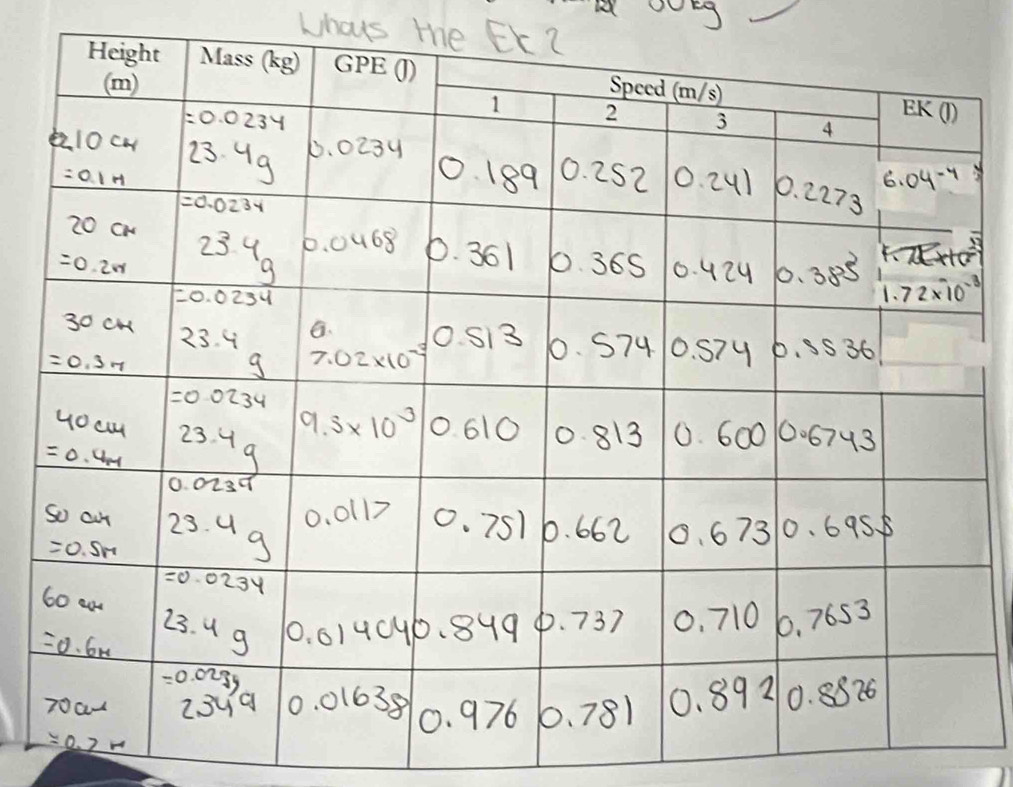 50kg
Whats the Ek?
Height (m) Mass (kg) GPE (J) Speed (m/s) EK (J)
1 2 3 4
10 cm =0.1m =0.0234 23.4g 0.0234 0.189 0.252 0.241 0.2273 6.04-4
20 cm =0.2m =0.0234 23.4g 0.0468 0.361 0.365 0.424 0.383 1.72×10-3
30 cm =0.3m =0.0234 23.4g 7.02×10-3 0.513 0.574 0.574 0.5536
40cm =0.4m =0.0234 23.4g 9.3×10-3 0.610 0.813 0.600 0.6743
50 cm =0.5m 0.0234 23.4g 0.0117 0.751 0.662 0.673 0.695
60 cm =0.6m =0.0234 23.4g 0.01404 0.849 0.737 0.710 0.7653
70cm =0.7m =0.0234 234g 0.01638 0.976 0.781 0.892 0.8826